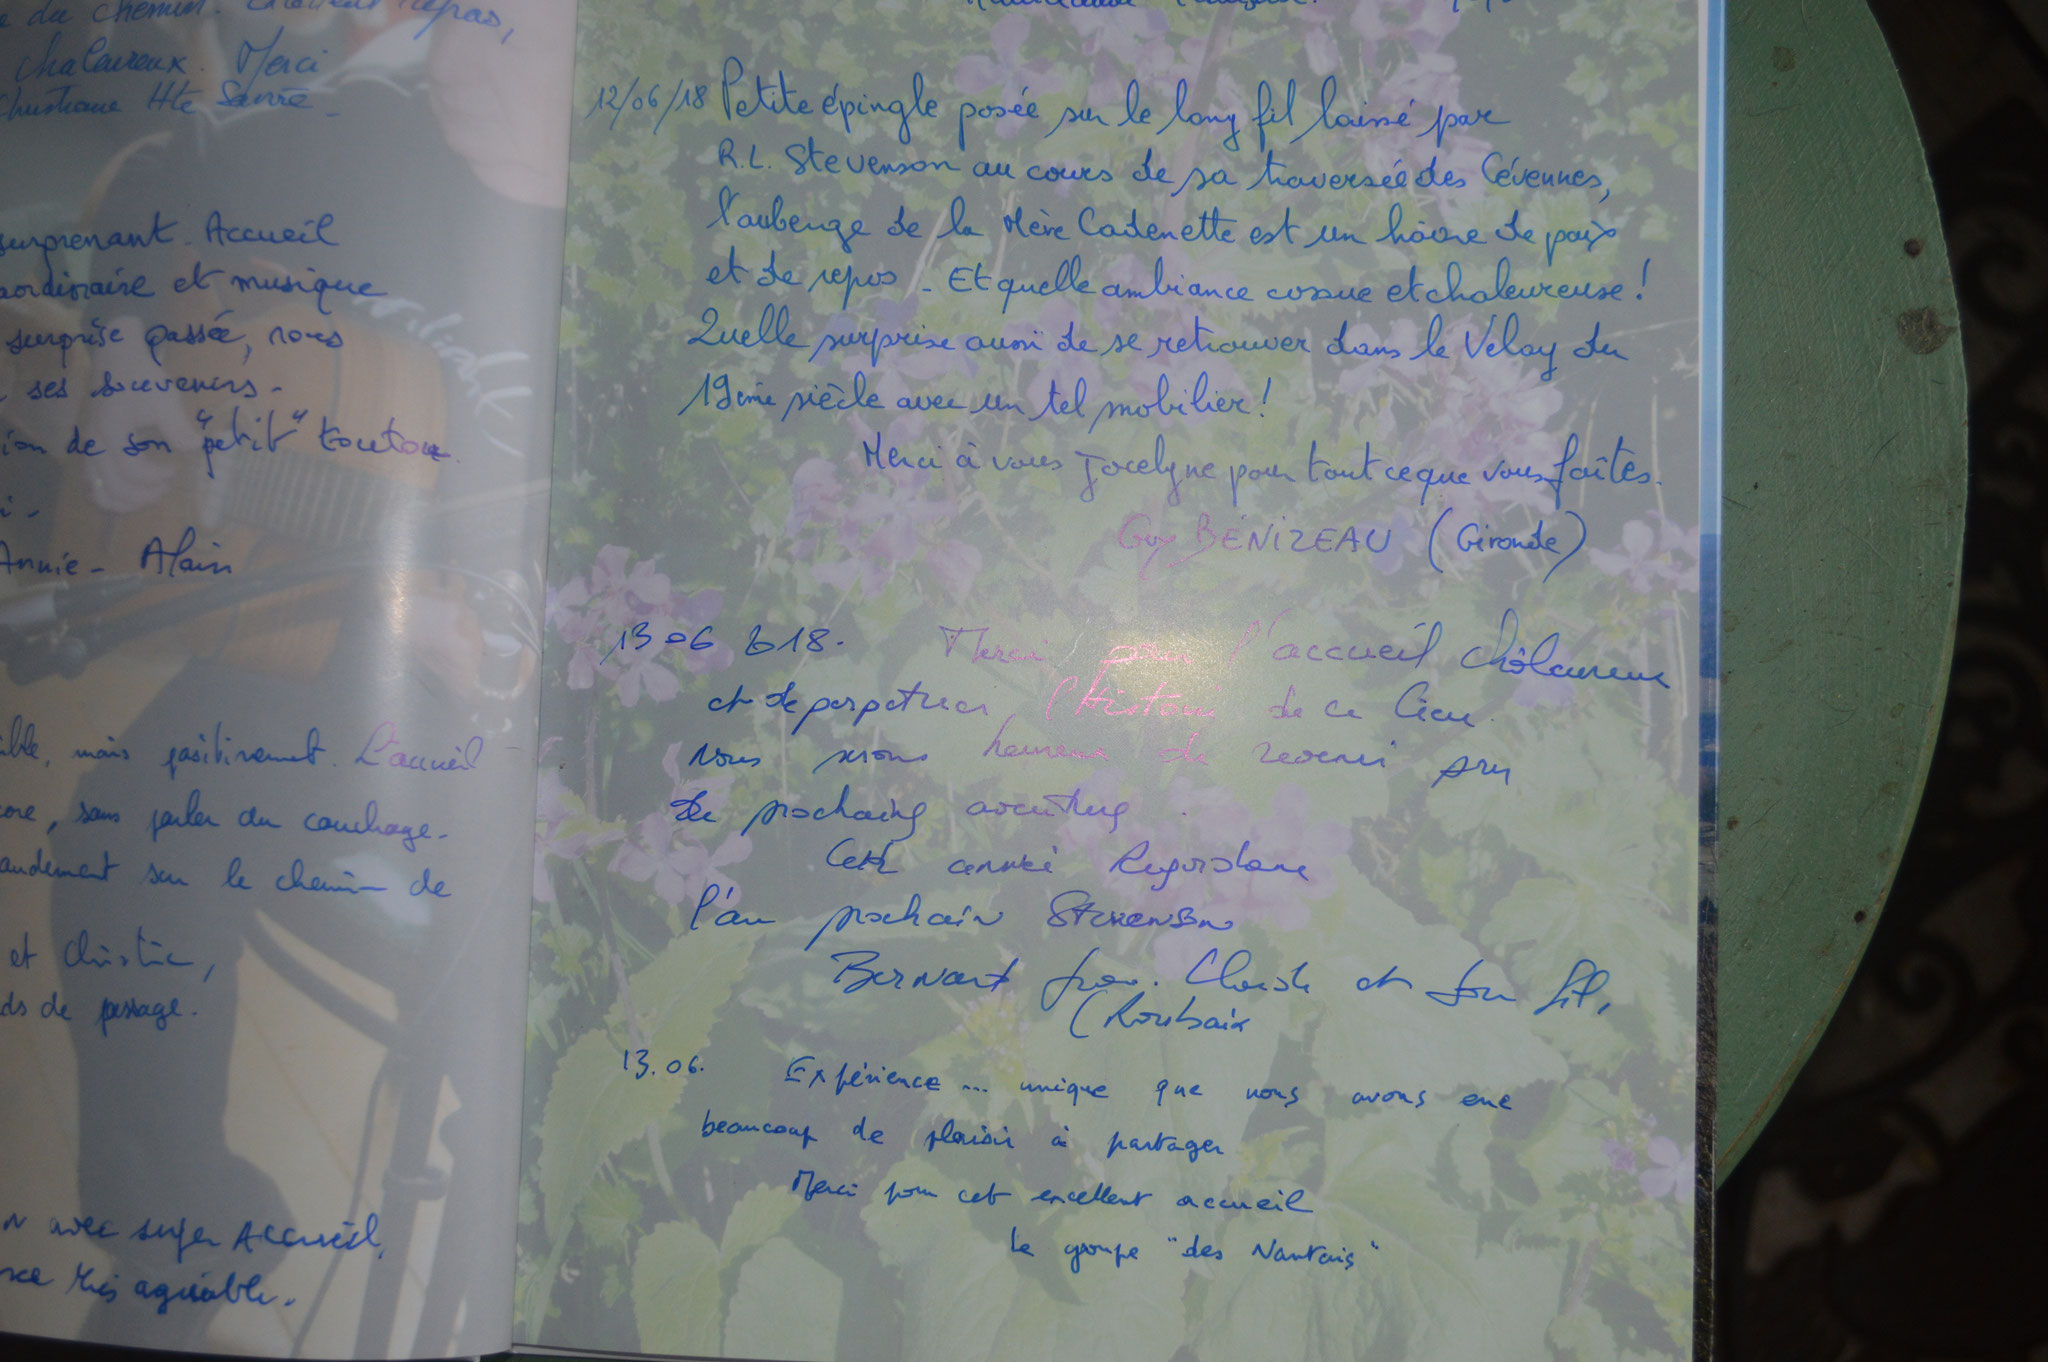 du chemin. Excellent repas,
chaleureux. Merci
Christiane Hte Savoie
surprenant. Accueil
aordinaire et musique
surprise passée, nous
ses souvenirs.
ion de son "petit" toutou.
Annie - Alain
ible, mais positivement. L'accueil
ore, sans parler du couchage.
audement sur le chemin de
et Christine,
ds de passage.
avec super Accueil,
très agréable.
12/06/18 Petite épingle posée sur le long fil laissé par
R.L. Stevenson au cours de sa traversée des Cévennes,
l'auberge de la Mère Cadenette est un hâvre de paix
et de repos - Et quelle ambiance cossue et chaleureuse !
Quelle surprise aussi de se retrouver dans le Velay du
19ème siècle avec un tel mobilier !
Merci à vous Jocelyne pour tout ce que vous faîtes.
Guy BÉNIZEAU (Gironde)
13 06 2018. Merci pour l'accueil châleureux
et de perpetuer l'Histoire de ce lieu.
Nous serons heureux de revenir pour
de prochaines aventures.
Cette année Regordane
l'an prochain Stevenson
Bernard et son fils
(Roubaix
13.06. Expérience ... unique que nous avons eue
beaucoup de plaisir à partager
Merci pour cet excellent accueil
Le groupe "des Nantais"